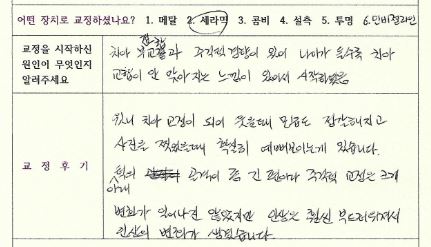 어떤 장치로 교정하셨나요? 1. 메탈 2. 세라믹 3. 콤비 4. 설측 5. 투명 6. 인비절라인
교정을 시작하신
원인이 무엇인지
알려주세요
치아 부정교합과 주걱턱 경향이 있어 나이가 들수록 치아
교합이 안 맞아지는 느낌이 있어서 시작하였음
교 정 후 기
치아 교정이 되어 웃을때 만큼은 깔끔해지고
사진을 찍었을때 확실히 예뻐보이는게 있습니다.
턱의 골격이 좀 긴 편이라 주걱턱 교정은 크게
아래
변화가 일어나진 않았지만 인상은 훨씬 부드러워져서
인상의 변화가 생겼습니다.